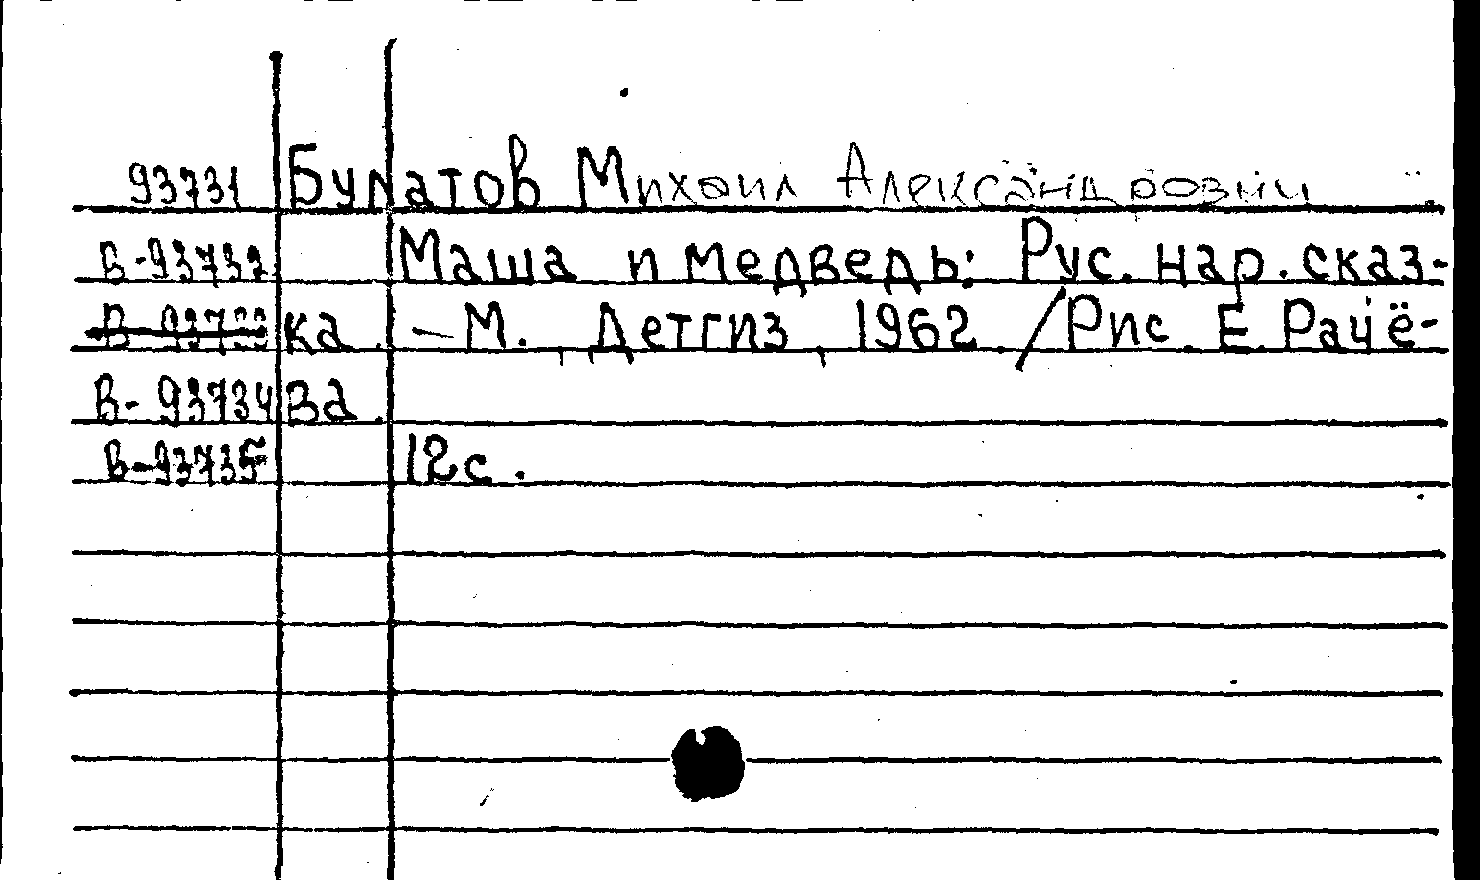 93731 Булатов Михаил Александрович
В-93732 Маша и медведь: Рус. нар. сказ-
В-93733 ка. - М., Детгиз, 1962. /Рис. Е. Рачё-
В-93734 ва.
В-93735 12с.